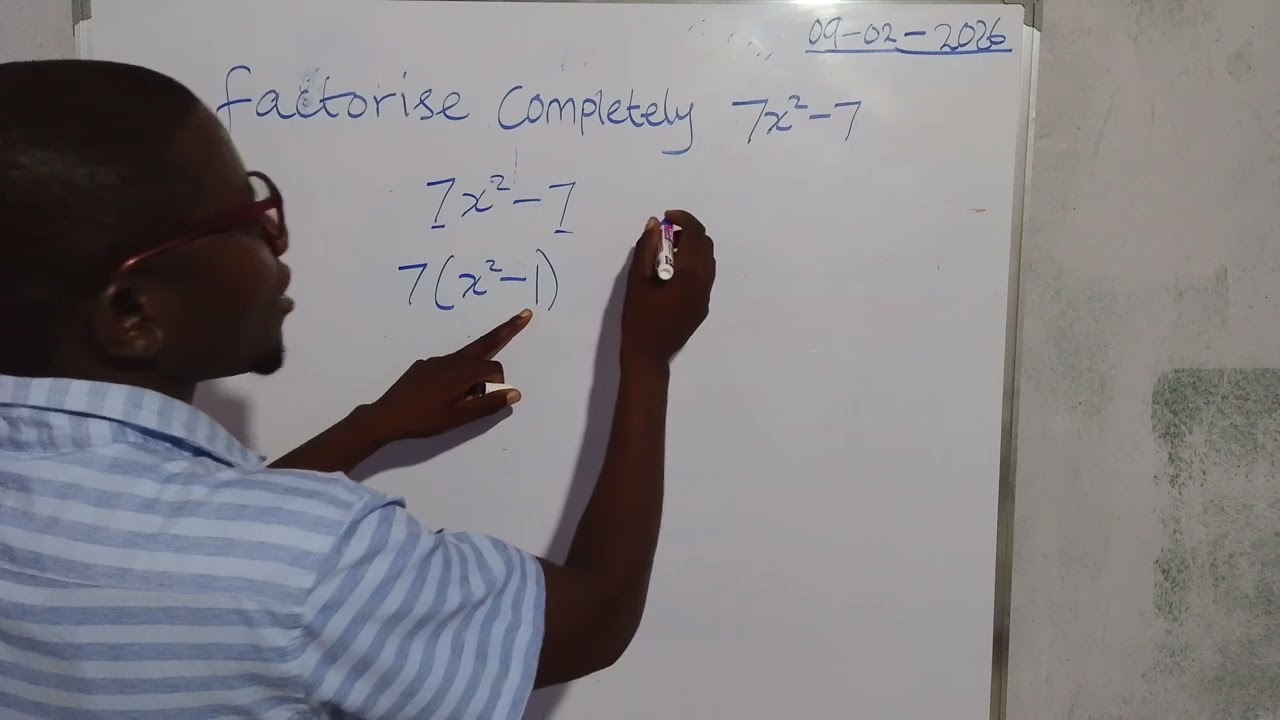 09-02-2026
factorise Completely 7x²-7
7x²-7
7(x²-1)